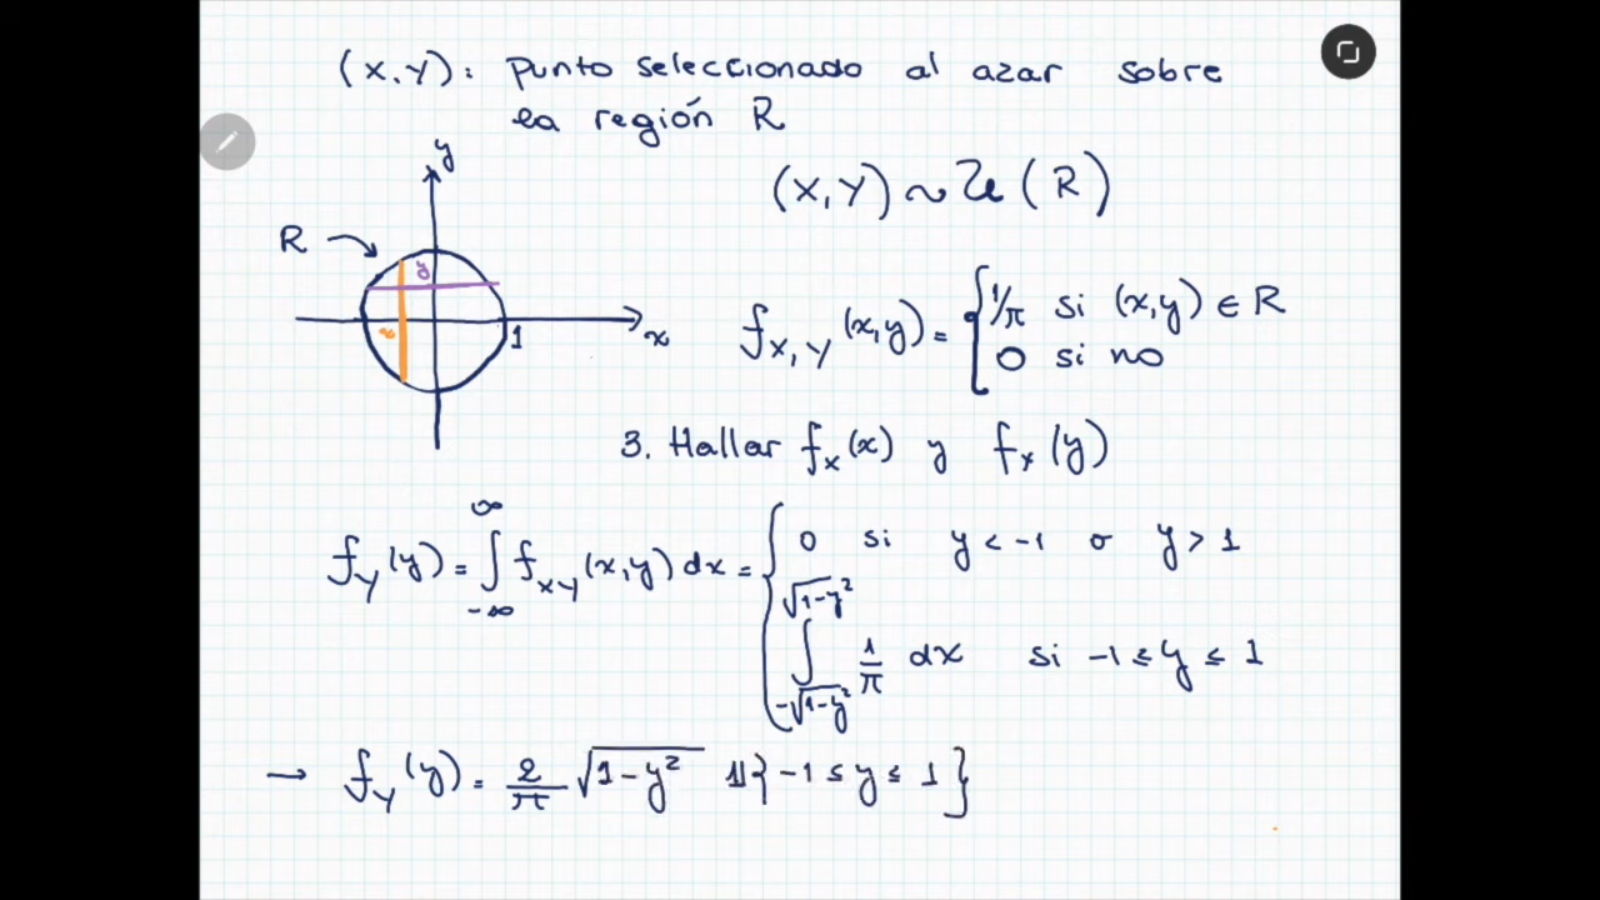 (X,Y): punto seleccionado al azar sobre
la región R
(X,Y) ~ U(R)
y
R
y
x
1
x
f_{X,Y}(x,y) = { 1/π si (x,y) ∈ R
0 si no
3. Hallar f_X(x) y f_X(y)
f_Y(y) = ∫_{-∞}^{∞} f_{XY}(x,y) dx = { 0 si y < -1 o y > 1
∫_{-√(1-y²)}^{√(1-y²)} 1/π dx si -1 ≤ y ≤ 1
→ f_Y(y) = 2/π √(1-y²) 𝟙{-1 ≤ y ≤ 1}